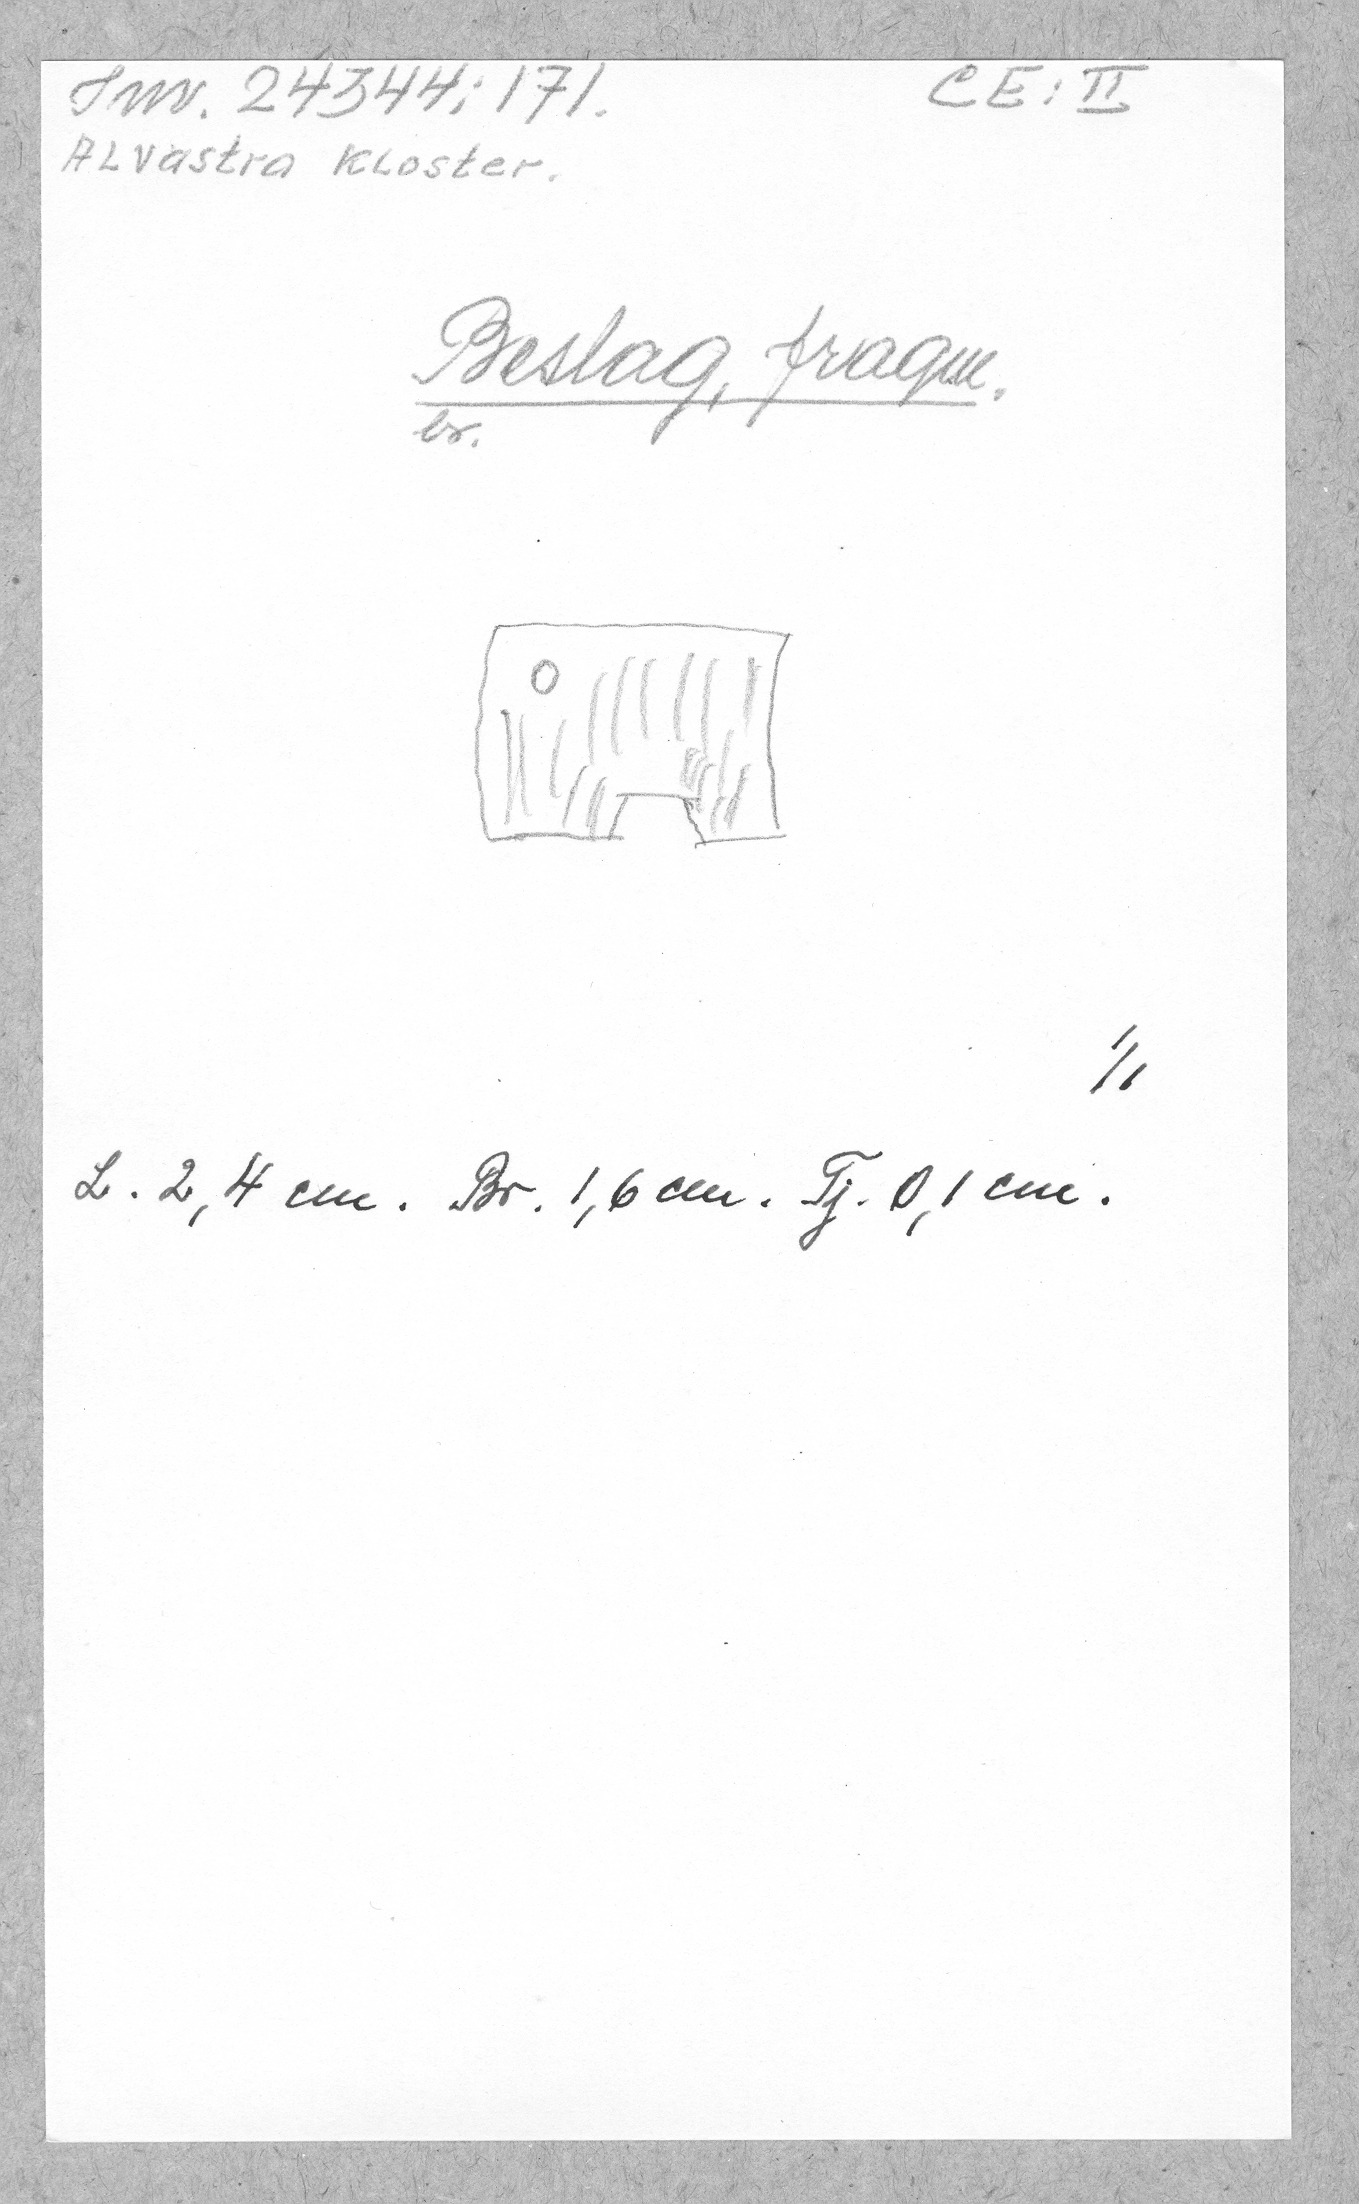 Inv. 24344:171. CE: II
Alvastra Kloster.
Beslag, fragm.
br.
1/1
L. 2,4 cm. Br. 1,6 cm. Tj. 0,1 cm.